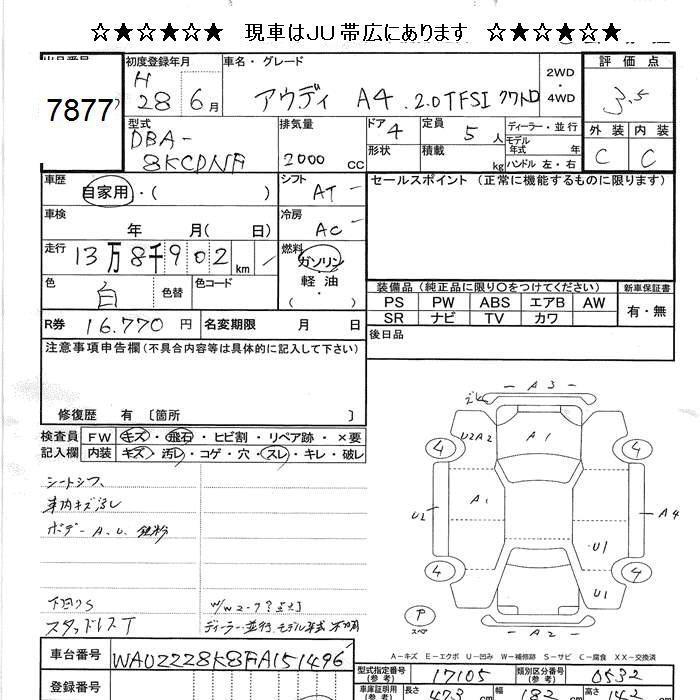 ☆★☆★☆★ 現車はJU帯広にあります ☆★☆★☆★
初度登録年月
車名・グレード
2WD
・
4WD
評価点
7877
H
28 6月
アウディ A4 .2.0TFSI クワトロ
3.5
型式
DBA-
8KCDNF
排気量
2000 cc
ドア 4
定員 5人
ディーラー・並行
モデル
年式 年
ハンドル 左・右
形状
積載 kg
外装 内装
C C
車歴 自家用・( )
シフト AT
セールスポイント (正常に機能するものに限ります)
車検 年 月(日)
冷房 AC
走行 13万8千902 km
燃料 ガソリン
軽油
・( )
色 白
色替
色コード
装備品(純正品に限り○をつけてください)
新車保証書
PS PW ABS エアB AW
有・無
SR ナビ TV カワ
R券 16.770 円
名変期限 月 日
後日品
注意事項申告欄(不具合内容等は具体的に記入して下さい)
修復歴 有 〔箇所 〕
検査員
記入欄
FW キズ・飛石・ヒビ割・リペア跡・×要
内装 キズ・汚レ・コゲ・穴・スレ・キレ・破レ
シートシワ、
車内キズ汚レ
ボデー A.U. 鉄粉
下回りS
スタッドレスT
ディーラー・並行 モデル年式 不明
A3
U2A2
A1
4 4
A1
U2
A4
U1
4 4
U1
A2
スペア
A-キズ E-エクボ U-凹み W-補修跡 S-サビ C-腐食 XX-交換済
車台番号 WAUZZZ8K8FA151496
型式指定番号
(参考)
17105
類別区分番号
(参考)
0532
登録番号
車庫証明用
(参考)
長さ 473 cm
幅 182 cm
高さ 142 cm